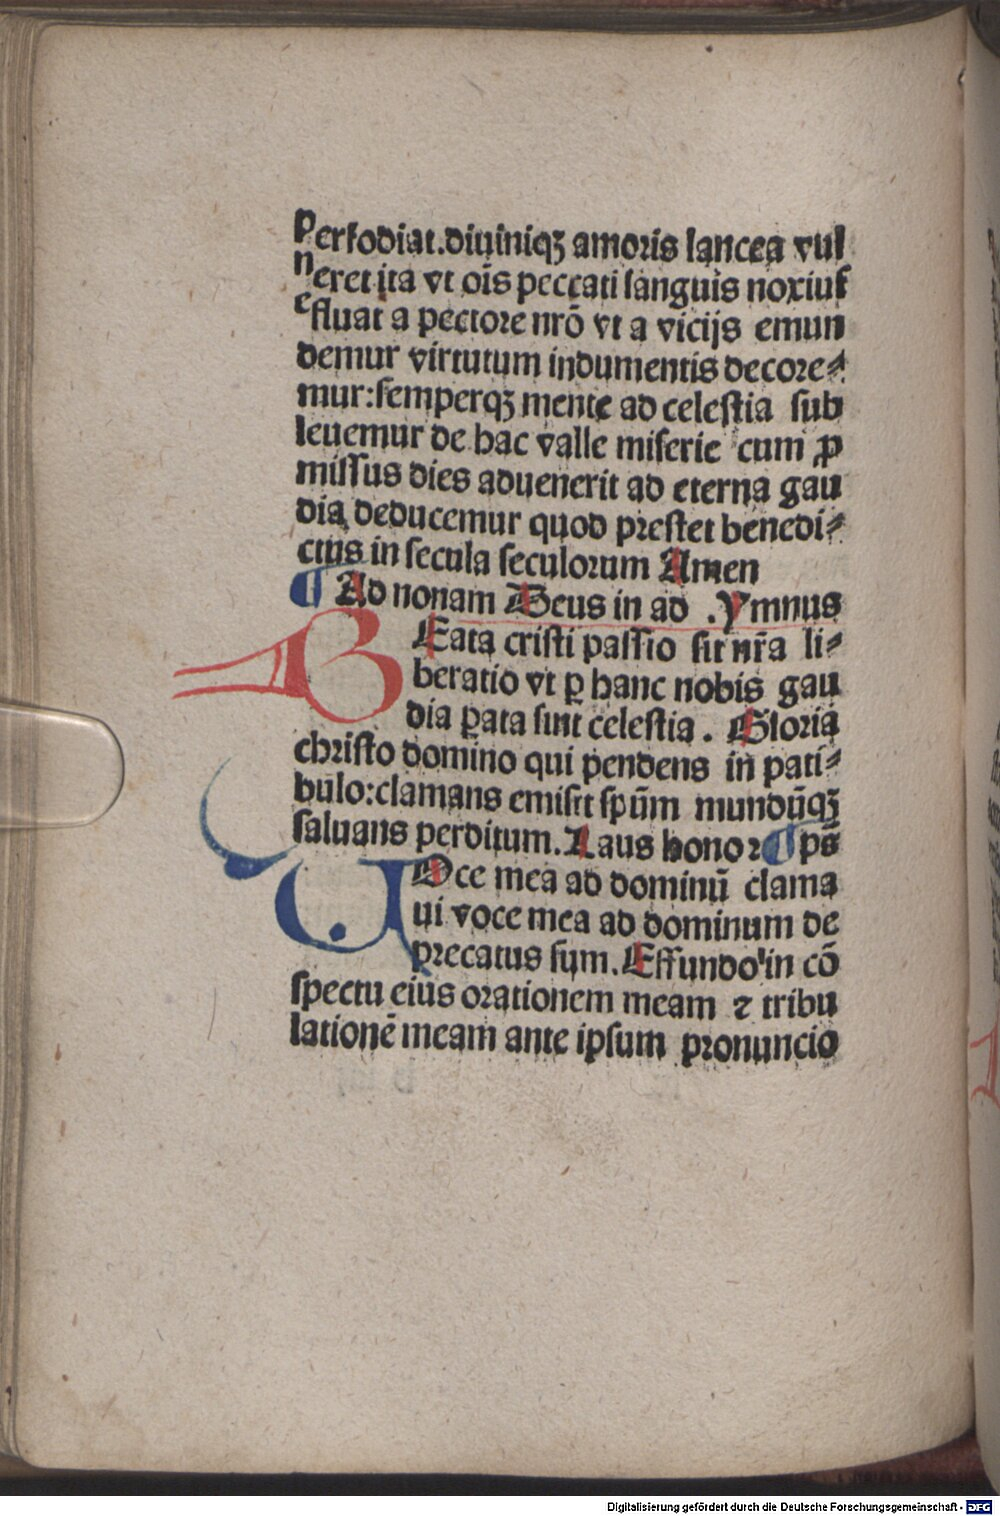 perfodiat.diuiniqꝫ amoris lancea vul
neret ita vt oīs peccati sanguis noxius
efluat a pectore nrō vt a vicijs emun
demur virtutum indumentis decore⸗
mur:semperqꝫ mente ad celestia sub
leuemur de hac valle miserie cum ꝓ
missus dies aduenerit ad eterna gau
dia deducemur quod prestet benedi⸗
ctus in secula seculorum Amen
¶ Ad nonam Deus in ad .Ymnus
BEata cristi passio sit nr̄a li⸗
beratio vt ꝑ hanc nobis gau
dia ꝑata sint celestia . Gloria
christo domino qui pendens in pati⸗
bulo:clamans emisit spūm mundūqꝫ
saluans perditum.Laus honor ¶ ps̄
VOce mea ad dominū clama
ui voce mea ad dominum de
precatus sum.Effundo in cō
spectu eius orationem meam ⁊ tribu
lationē meam ante ipsum pronuncio
Digitalisierung gefördert durch die Deutsche Forschungsgemeinschaft - DFG